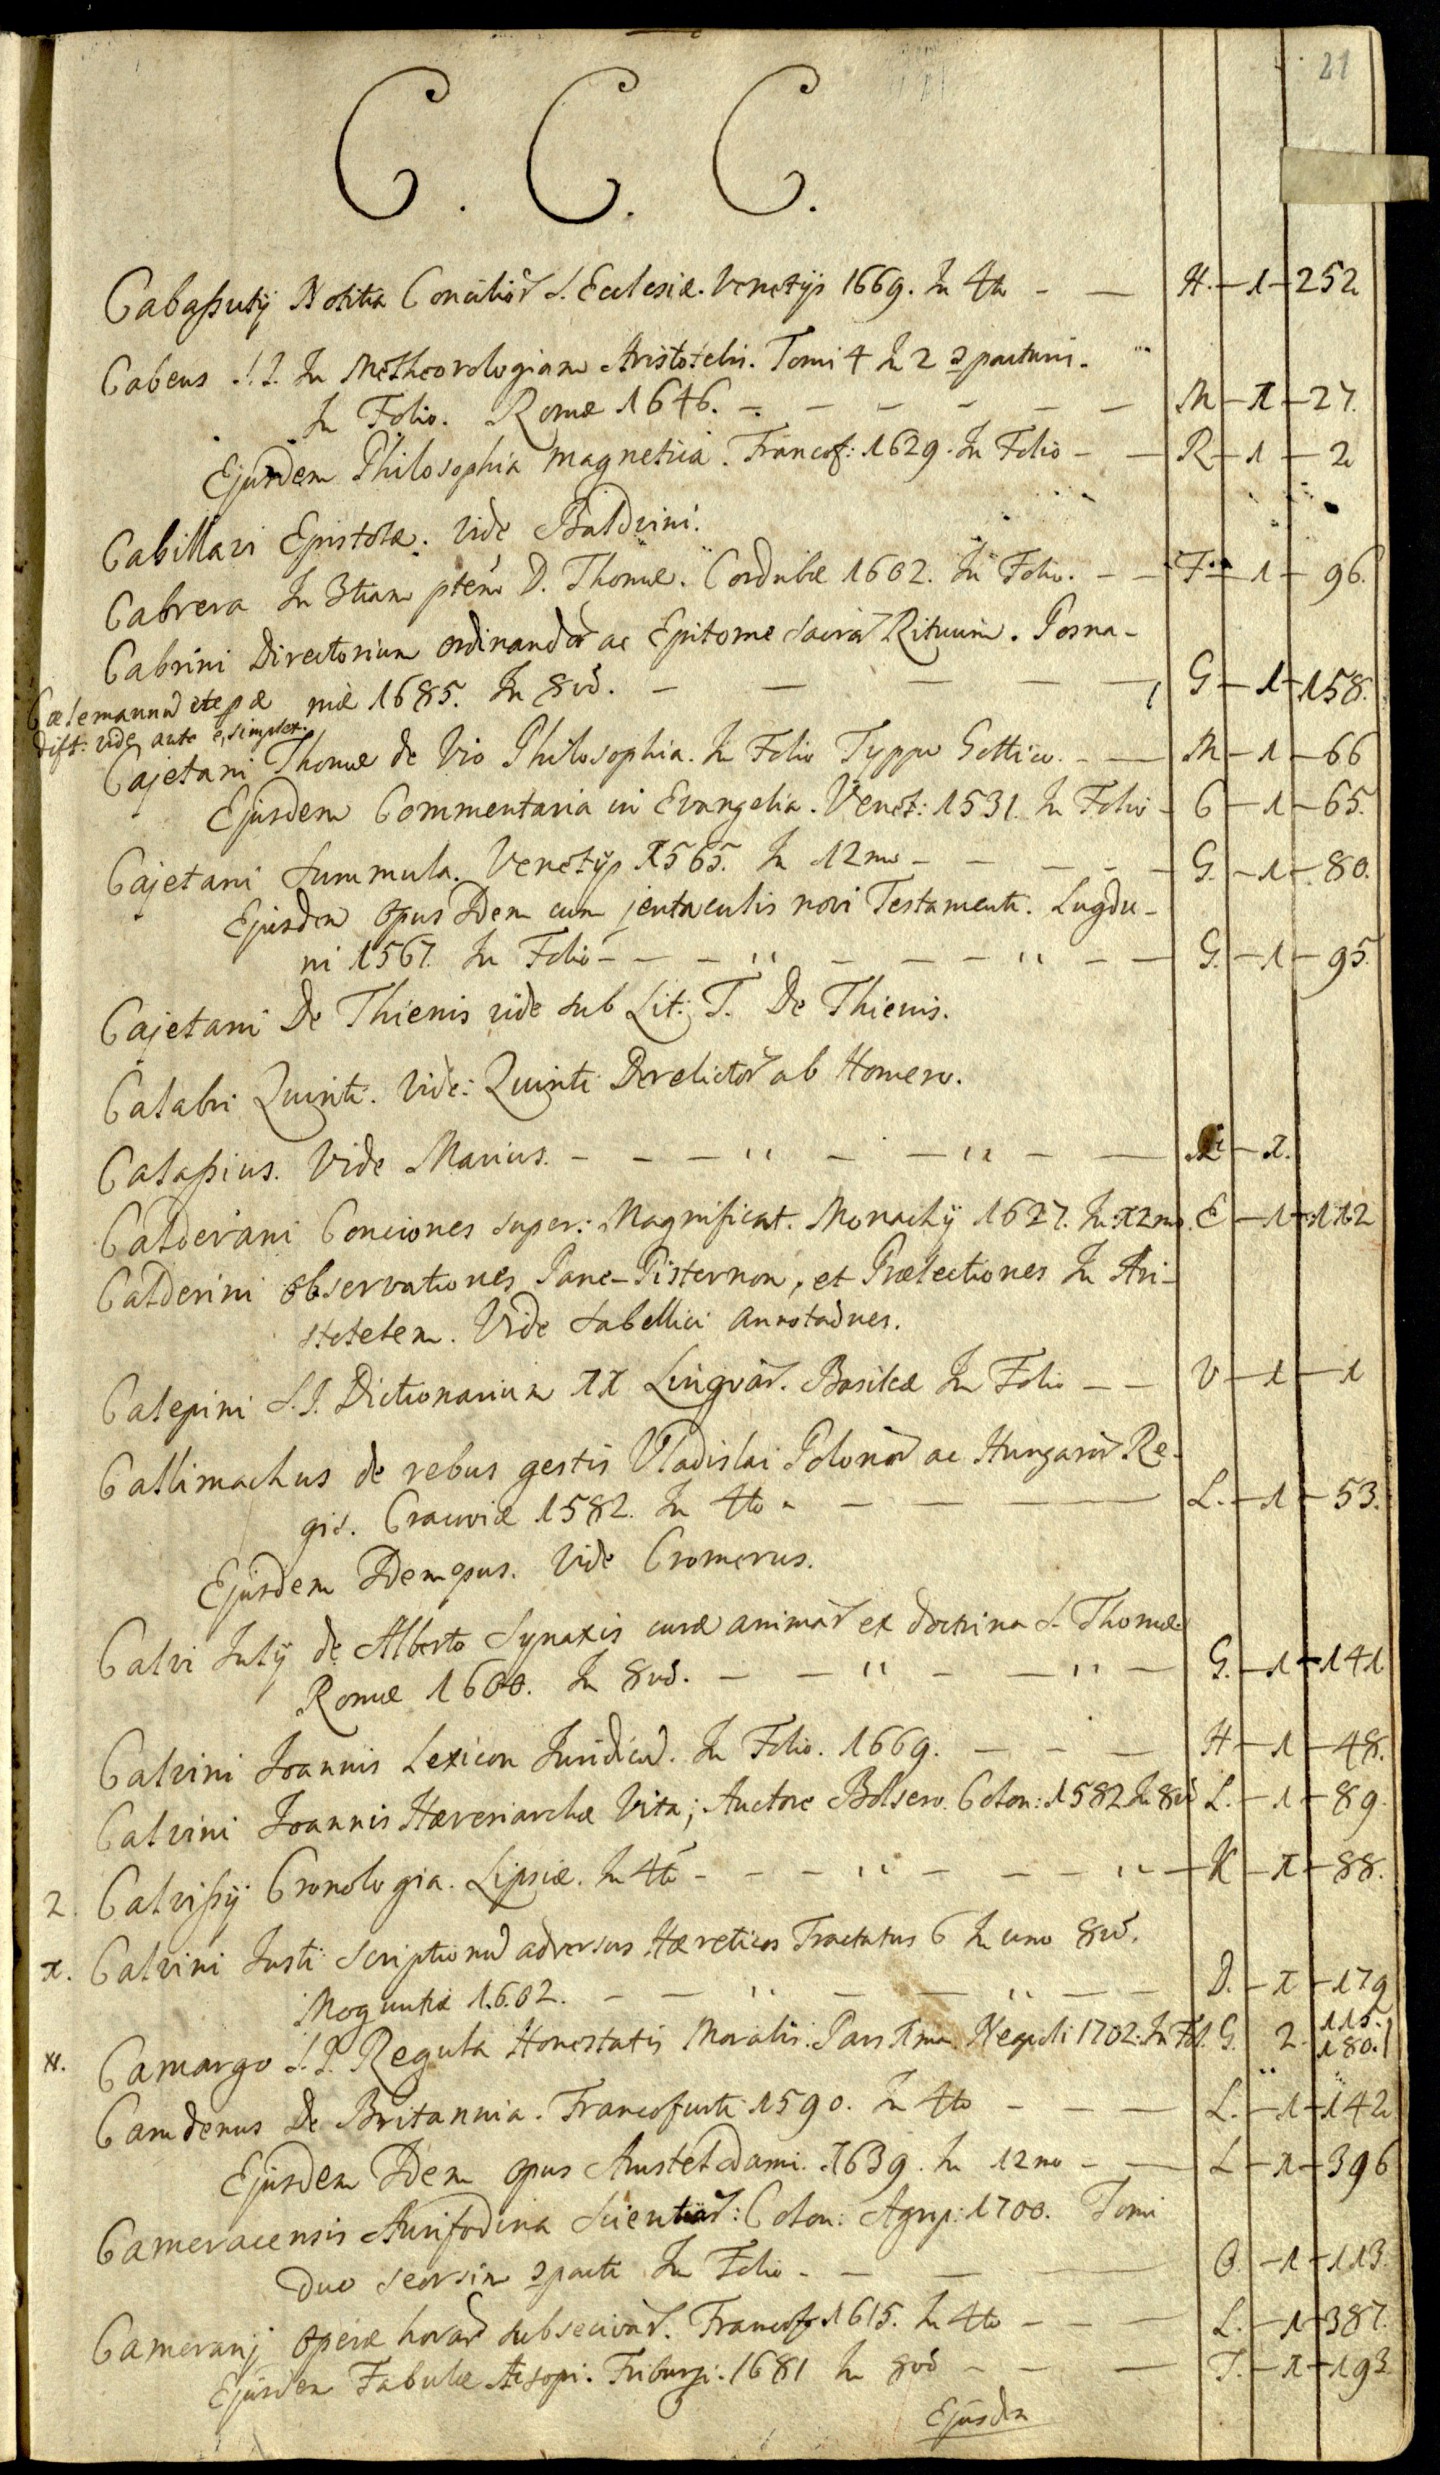 21
C. C. C.
Cabaßutij Notitia Conciliorũ S. Ecclesiæ. Venetijs 1669. In 4to — — H. — 1 — 252
Cabeus S.J. In Metheorologiam Aristotelis. Tomi 4 In 2
In Folio. Romæ 1646. — — — — — — M — 1 — 27.
Ejusdem Philosophia magnetica. Francof: 1629. In Folio — — R — 1 — 2
Cabillavi Epistolæ. vide Baldvini.
Cabrera In 3tiam ptem D. Thomæ. Cordubæ 1602. In Folio. — — F — 1 — 96.
Cabrini Directorium ordinandorũ ac Epitome sacrorũ Rituum. Posna-
niæ 1685. In 8vo. — — — — G — 1 — 158.
Cajetani Thomæ de Vio Philosophia. In Folio Typpo Gottico. — — M — 1 — 66
Ejusdem Commentaria in Evangelia. Venet: 1531. In Folio — C — 1 — 65.
Cajetani Summula. Venetijs 1565. In 12mo — — — — — G. — 1 — 80.
Ejusdem opus Idem cum jentaculis novi Testamenti. Lugdu-
ni 1567. In Folio — — — " — — — " — — G. — 1 — 95.
Cajetani De Thienis vide sub Lit: T. De Thienis.
Calabri Quinti. Vide: Quinti Derelictorũ ab Homero.
Calaßius. Vide Marius. — — — " — — " — — — 1.
Calderani Conciones super: Magnificat. Monachij 1627. In 12mo. E — 1 — 112
Calderini observationes Pane-Pisternon, et Prælectiones In Ari-
stotelem. Vide Sabellici Annotaõnes.
Calepini S.J. Dictionarium 11 Linguarũ. Basileæ In Folio — — V — 1 — 1
Callimachus de rebus gestis Vladislai Polonorũ ac Hungarorũ Re-
gis. Cracoviæ 1582. In 4to — — — — L. — 1 — 53.
Ejusdem Idem opus. Vide Cromerus.
Calvi Julij de Alberto Synaxis curæ animarũ ex doctrina S. Thomæ
Romæ 1600. In 8vo. — — " — — " — G. — 1 — 141
Calvini Joannis Lexicon Juridicũ. In Folio. 1669. — — — H — 1 — 48.
Calvini Joannis Hæresiarchæ Vita; Auctore Bolseco. Colon: 1582 In 8vo L. — 1 — 89.
2. Calvißij Cronologia. Lipsiæ. In 4to — — — " — — — " — K — 1 — 88.
x. Calvini Justi Scriptionũ adversus Hæreticos Tractatus 6 In uno 8vo.
Moguntiæ 1602. — — " — — " — — D. — 1 — 179
Camargo S.J. Regula Honestatis Moralis. Pars 1ma Neapoli 1702. In Fol. G. 2. 115. 180.
Camdenus De Britannia. Francofurti 1590. In 4to — — — L. — 1 — 142
Ejusdem Idem opus Amstelodami. 1639. In 12mo — — L — 1 — 396
Cameracensis Aurifodina Scientiarũ: Colon: Agrip: 1700. Tomi
duo seorsim In Folio — — — — O. — 1 — 113.
Camerarij Operæ horarũ subsecivarũ. Francof 1615. In 4to — — — L. — 1 — 387.
Ejusdem Fabulæ Æsopi. Friburgi. 1681 In 8vo — — — T. — 1 — 193
Ejusdem